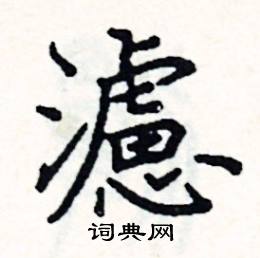 濾
词典网